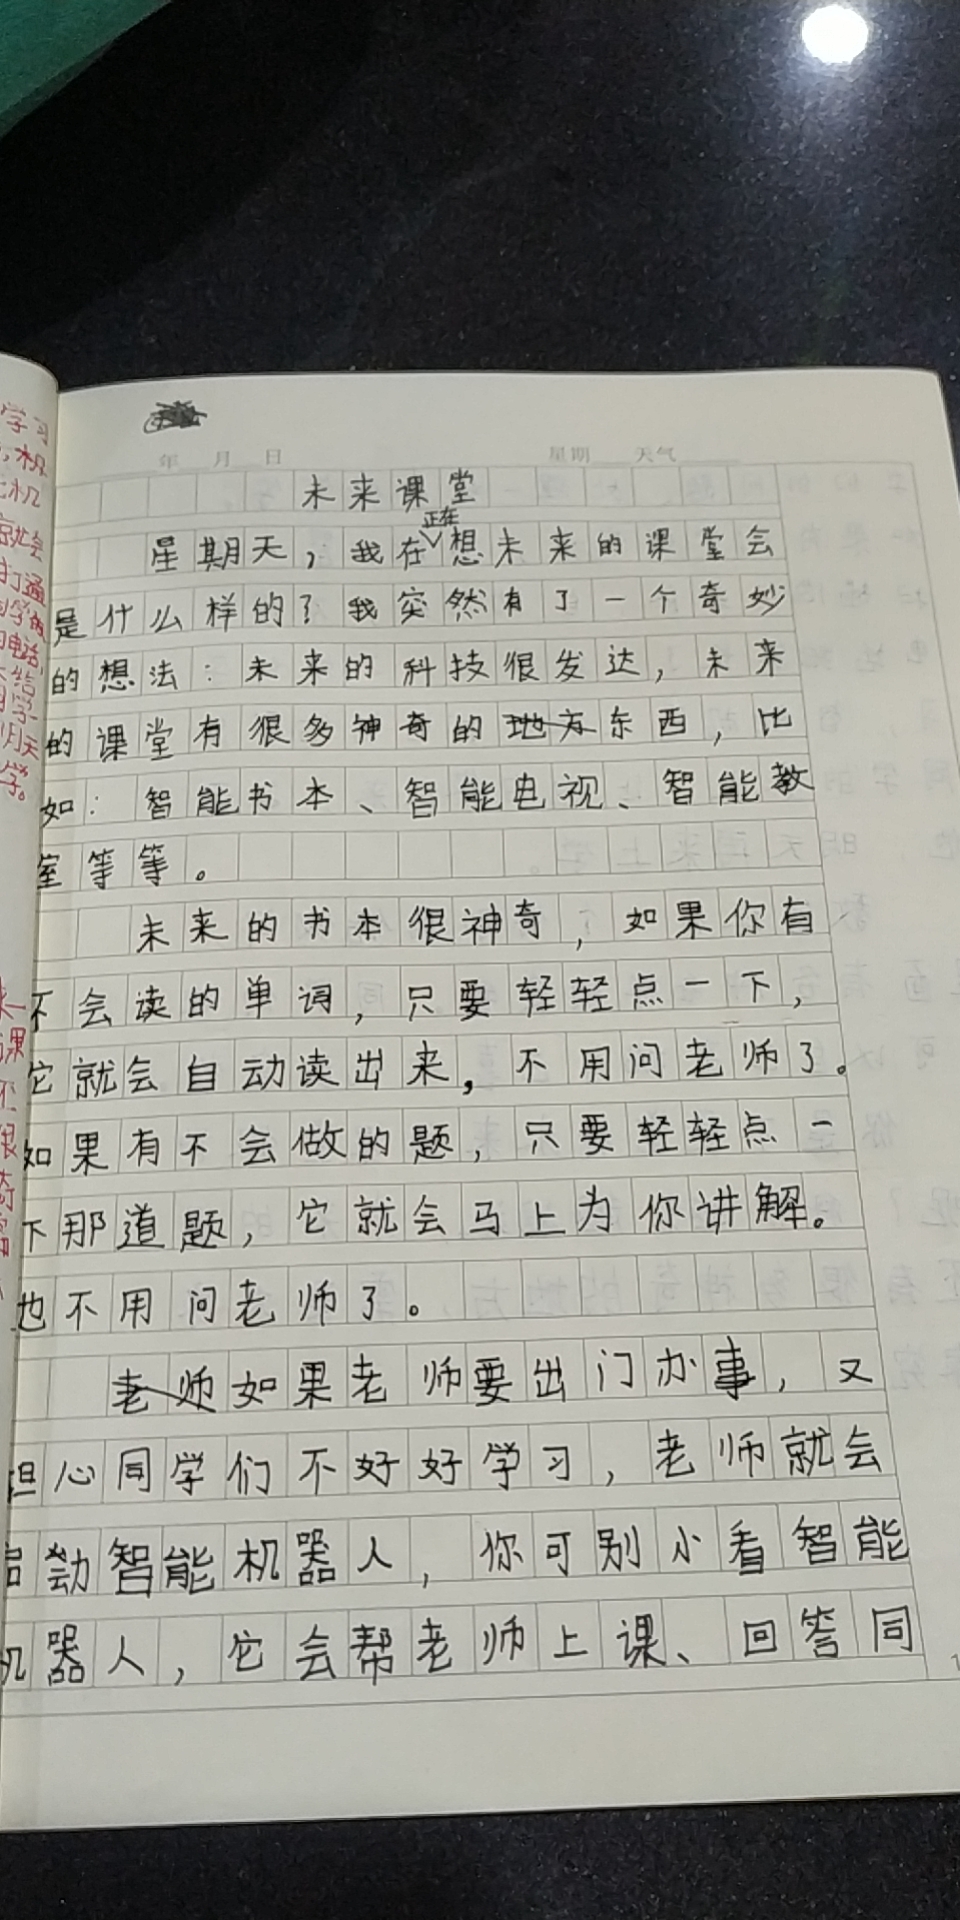 学习
年 月 日 星期 天气
未来课堂
正在
星期天，我在想未来的课堂会
是什么样的？我突然有了一个奇妙
的想法：未来的科技很发达，未来
的课堂有很多神奇的地方东西，比
如：智能书本、智能电视、智能教
室等等。
未来的书本很神奇，如果你有
不会读的单词，只要轻轻点一下，
它就会自动读出来，不用问老师了。
如果有不会做的题，只要轻轻点一
下那道题，它就会马上为你讲解。
也不用问老师了。
老师如果老师要出门办事，又
担心同学们不好好学习，老师就会
启动智能机器人，你可别小看智能
机器人，它会帮老师上课、回答同